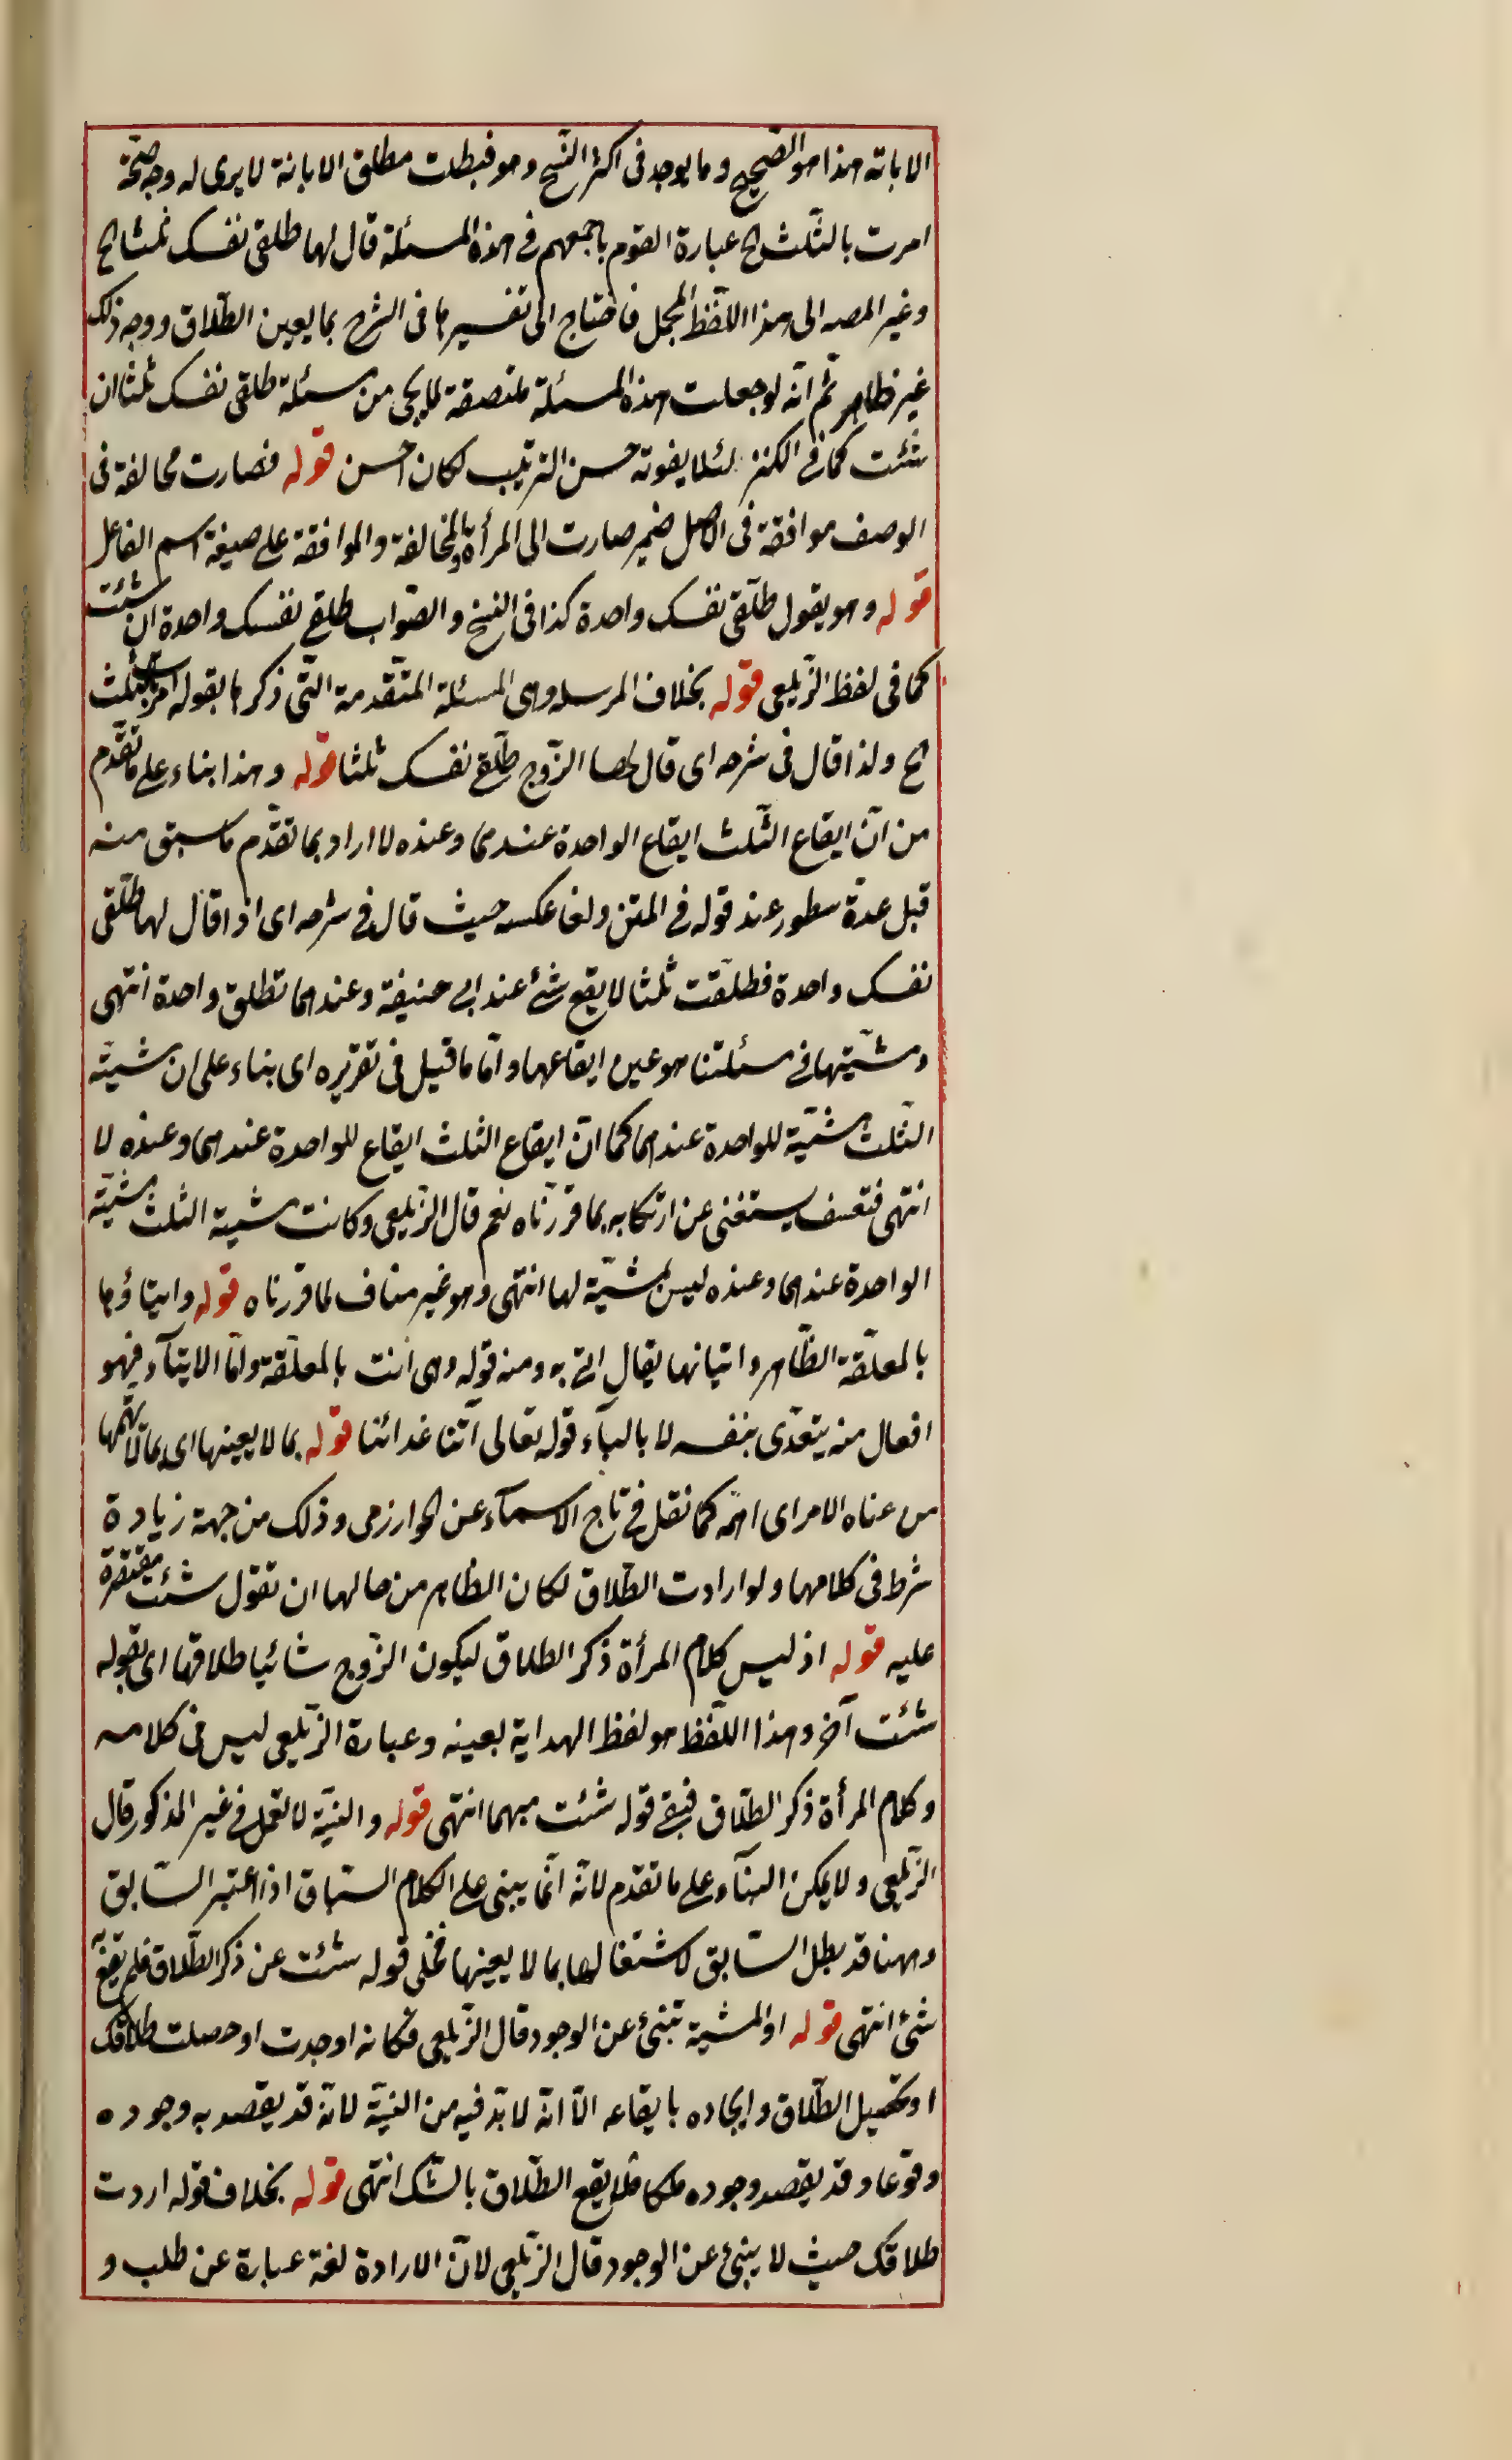 الابانة هذا هو الصحيح وما يوجد فى اكثر النسخ وهو فبطلت مطلق الابانة لا يرى له وجه صحة
امرت بالثلث الخ عبارة القوم باجمعهم فى هذه المسئلة قال لها طلقى نفسك ثلثا الخ
وغير المصه الى هذا اللفظ المجمل فاحتاج الى تفسيرها فى الشرح بما يعين الطلاق ووجه ذلك
غير ظاهر ثم انه لو جعلت هذه المسئلة ملتصقة لما يجى من مسئلة طلقى نفسك ثلثا ان
شئت كما فى الكنز لئلا يفوته حسن الترتيب لكان احسن قوله فصارت مخالفة فى
الوصف موافقة فى الاصل ضمير صارت الى المرأة والمخالفة والموافقة على صيغة اسم الفاعل
قوله وهو يقول طلقى نفسك واحدة كذا فى النسخ والصواب طلقى نفسك واحدة ان شئت
كما فى لفظ الزيلعى قوله بخلاف المرسله وهى المسئلة المتقدمة التى ذكرها بقوله امرت بالثلث
الخ ولذا قال فى شرحه اى قال لها الزوج طلقى نفسك ثلثا قوله وهذا بناء على ما تقدم
من ان ايقاع الثلث ايقاع الواحدة عندهما وعنده لا اراد بما تقدم ما سبق منه
قبل عدة سطور عند قوله فى المتن ولغا عكسه حيث قال فى شرحه اى اذا قال لها طلقى
نفسك واحدة فطلقت ثلثا لا يقع شئ عند ابى حنيفة وعندهما تطلق واحدة انتهى
ومشيتها فى مسئلتنا هو عين ايقاعها واما ما قيل فى تقريره اى بناء على ان مشية
الثلث مشية للواحدة عندهما كما ان ايقاع الثلث ايقاع للواحدة عندهما وعنده لا
انتهى فتعسف يستغنى عن ارتكابه بما قررناه نعم قال الزيلعى وكانت مشية الثلث مشية
الواحدة عندهما وعنده ليس بمشية لها انتهى وهو غير مناف لما قررناه قوله وايتاؤها
بالمعلقة الظاهر واتيانها يقال اتى به ومنه قوله وهى اتت بالمعلقة واما الايتآء فهو
افعال منه يتعدى بنفسه لا بالبآء قوله تعالى آتنا غدائنا قوله بما لا يعينها اى بما لا يهمها
من عناه الامر اى اهمه كما نقل فى تاج الاسمآء عن الخوارزمى وذلك من جهة زيادة
شرط فى كلامهما ولو ارادت الطلاق لكان الظاهر من حالها ان تقول شئت مقتصرة
عليه قوله اذ ليس كلام المرأة ذكر الطلاق ليكون الزوج شائيا طلاقها اى بقوله
شئت آخر وهذا اللفظ هو لفظ الهداية بعينه وعبارة الزيلعى ليس فى كلامه
وكلام المرأة ذكر الطلاق فبقى قوله شئت مبهما انتهى قوله والنية لا تعمل فى غير المذكور قال
الزيلعى ولا يمكن البنآء على ما تقدم لانه انما يبنى على الكلام السباق اذا اعتبر السابق
وههنا قد بطل السابق لاشتغالها بما لا يعينها فخلى قوله شئت عن ذكر الطلاق فلم يقع به
شئ انتهى قوله او المشية تنبئ عن الوجود قال الزيلعى فكانه اوجدت او حصلت طلاقك
او تحصيل الطلاق وايجاده بايقاعه الا انه لا بد فيه من النية لانه قد يقصد به وجوده
وقوعا وقد يقصد وجوده ملكا فلا يقع الطلاق بالشك انتهى قوله بخلاف قوله اردت
طلاقك حيث لا ينبئ عن الوجود قال الزيلعى لان الارادة لغة عبارة عن طلب و